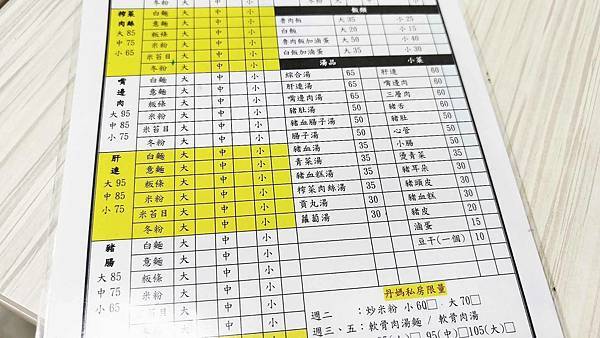 冬粉 大 中 小
榨菜肉絲
大 85
中 75
小 65
白麵 大 中 小
意麵 大 中 小
板條 大 中 小
米粉 大 中 小
米苔目 大 中 小
冬粉 大 中 小
嘴邊肉
大 95
中 85
小 75
白麵 大 中 小
意麵 大 中 小
板條 大 中 小
米苔目 大 中 小
冬粉 大 中 小
肝連
大 95
中 85
小 75
白麵 大 中 小
意麵 大 中 小
板條 大 中 小
米粉 大 中 小
米苔目 大 中 小
冬粉 大 中 小
豬腸
大 85
中 75
小 65
白麵 大 中 小
意麵 大 中 小
板條 大 中 小
米粉 大 中 小
米苔目 大 中 小
冬粉 大 中 小
飯類
魯肉飯 大 35 小 25
白飯 大 20 小 15
魯肉飯加滷蛋 大 50 小 40
白飯加滷蛋 大 35 小 30
湯品
綜合湯 65
肝連湯 65
嘴邊肉湯 65
豬肚湯 50
豬血腸子湯 50
腸子湯 50
豬血湯 35
青菜湯 35
豬血糕湯 35
榨菜肉絲湯 35
貢丸湯 30
蘿蔔湯 30
小菜
肝連 60
嘴邊肉 60
三層肉 60
豬舌 50
豬肚 50
心管 50
小腸 50
燙青菜 35
豬耳朵 30
豬頭皮 30
豬血糕 30
豬皮 20
滷蛋 15
豆干(一個) 10
丹媽私房限量
週二 :炒米粉 小 60□、大 70□
週三、五:軟骨肉湯麵 / 軟骨肉湯
95(中)□ 105(大)□